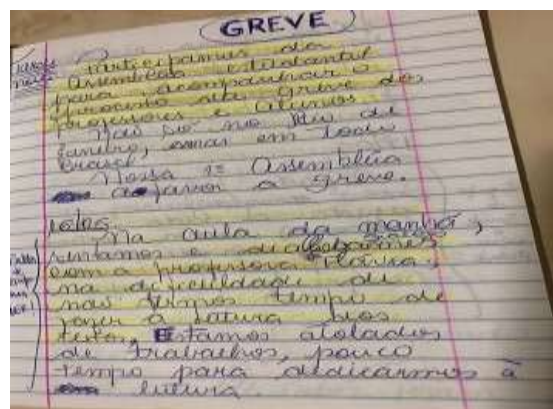 GREVE
Participamos da
assembleia estudantil
para acompanhar o
processo de greve dos
professores e alunos.
Não só no Rio de
Janeiro, mas em todo
Brasil.
Nossa 1ª Assembleia
a favor a greve.
Na aula da manhã,
sentamos e dialogamos
com a professora Flávia,
na dificuldade de
não termos tempo de
fazer a leitura dos
textos, Estamos atolados
de trabalhos, pouco
tempo para dedicarmos à
leitura.